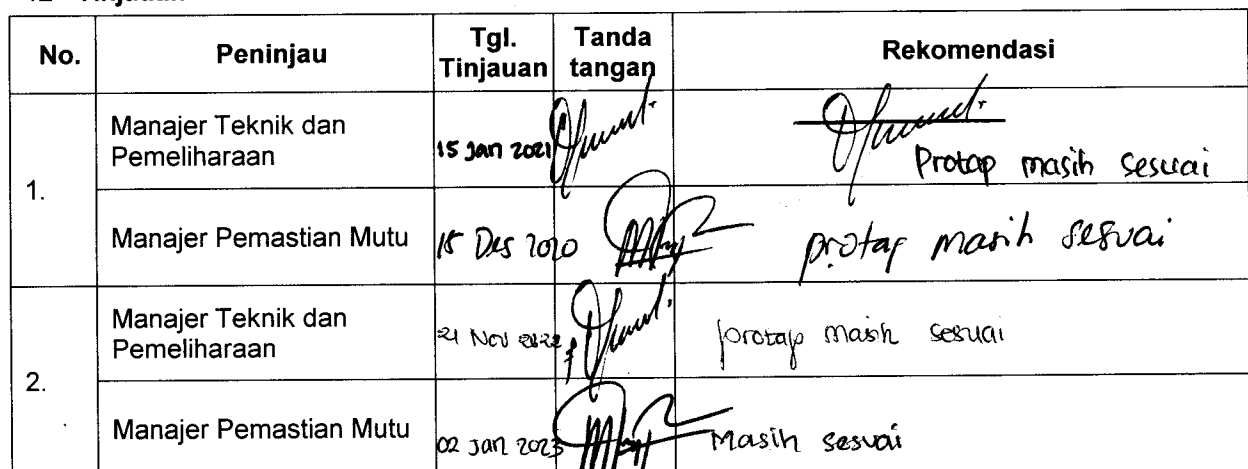 No. Peninjau Tgl. Tinjauan Tanda tangan Rekomendasi
1.
Manajer Teknik dan Pemeliharaan 15 Jan 2021 Protap masih sesuai
Manajer Pemastian Mutu 15 Des 2020 protap masih sesuai
2.
Manajer Teknik dan Pemeliharaan 21 Nov 2022 protap masih sesuai
Manajer Pemastian Mutu 02 Jan 2023 Masih sesuai